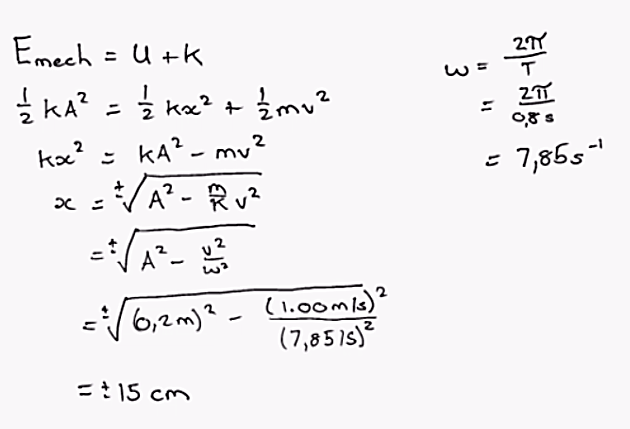 Emech = U + K
½ kA² = ½ kx² + ½ mv²
kx² = kA² - mv²
x = ±√(A² - m/k v²)
= ±√(A² - v²/ω²)
= ±√((0,2m)² - (1.00m/s)²/(7,85/s)²)
= ±15 cm
ω = 2π/T
= 2π/0,8s
= 7,85s⁻¹